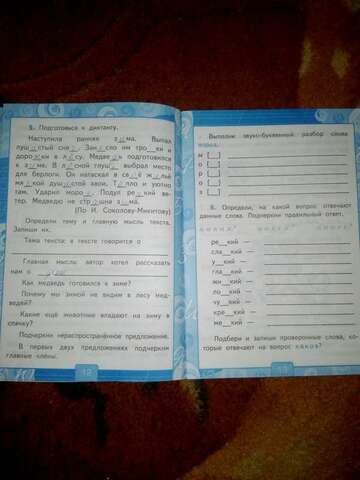 5. Подготовься к диктанту.
Наступила ранняя з__ма. Выпал
пуш__стый сне__. Зан__сло им тро__ки и
доро__ки в л__су. Медве__ь подготовился
к з__ме. В л__сной глуш__ выбрал место
для берлоги. Он натаскал в се__ё ж__льё
мя__кой душ__стой хвои. Т__пло и уютно
там. Ударил моро__. Подул ре__кий ве-
тер. Медведю не стр__шна з__ма.
(По И. Соколову-Микитову)
Определи тему и главную мысль текста.
Запиши их.
Тема текста: в тексте говорится о
Главная мысль: автор хотел рассказать
нам о
Как медведь готовился к зиме?
Почему мы зимой не видим в лесу мед-
ведей?
Какие ещё животные впадают на зиму в
спячку?
Подчеркни нераспространённое предложение.
В первых двух предложениях подчеркни
главные члены.
12
Выполни звуко-буквенный разбор слова
мороз.
м [__]
о [__]
р [__]
о [__]
з [__]
6. Определи, на какой вопрос отвечают
данные слова. Подчеркни правильный ответ.
ре__кий —
сла__кий —
у__кий —
гла__кий —
жи__кий —
ло__кий —
чу__кий —
кре__кий —
ме__кий —
Подбери и запиши проверочные слова, ко-
торые отвечают на вопрос каков?
13